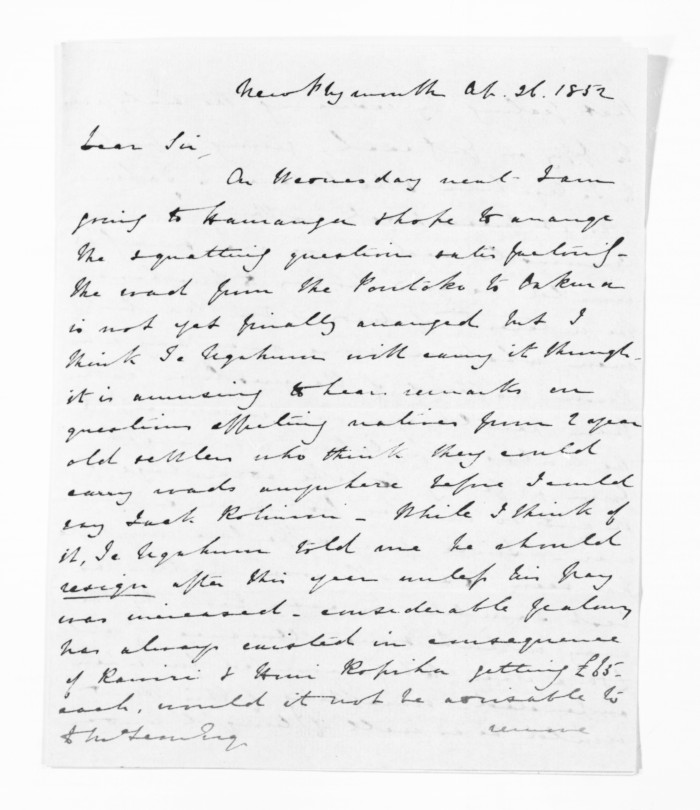 New Plymouth Ap. 26. 1852
Dear Sir,
On Wednesday next I am
going to Hauranga & hope to arrange
the squatting question satisfactorily -
the road from the Poutoko to Oakura
is not yet finally arranged but I
think Te Ngahuru will carry it through -
it is amusing to hear remarks on
questions affecting natives from 2 year
old settlers who think they could
carry roads anywhere before I could
say Jack Robinson - While I think of
it, Te Ngahuru told me he should
resign after this year unless his pay
was increased - considerable jealousy
has always existed in consequence
of Raniri & Honi Ropiha getting £65-
each, would it not be advisable to
remove
D McLean Esq